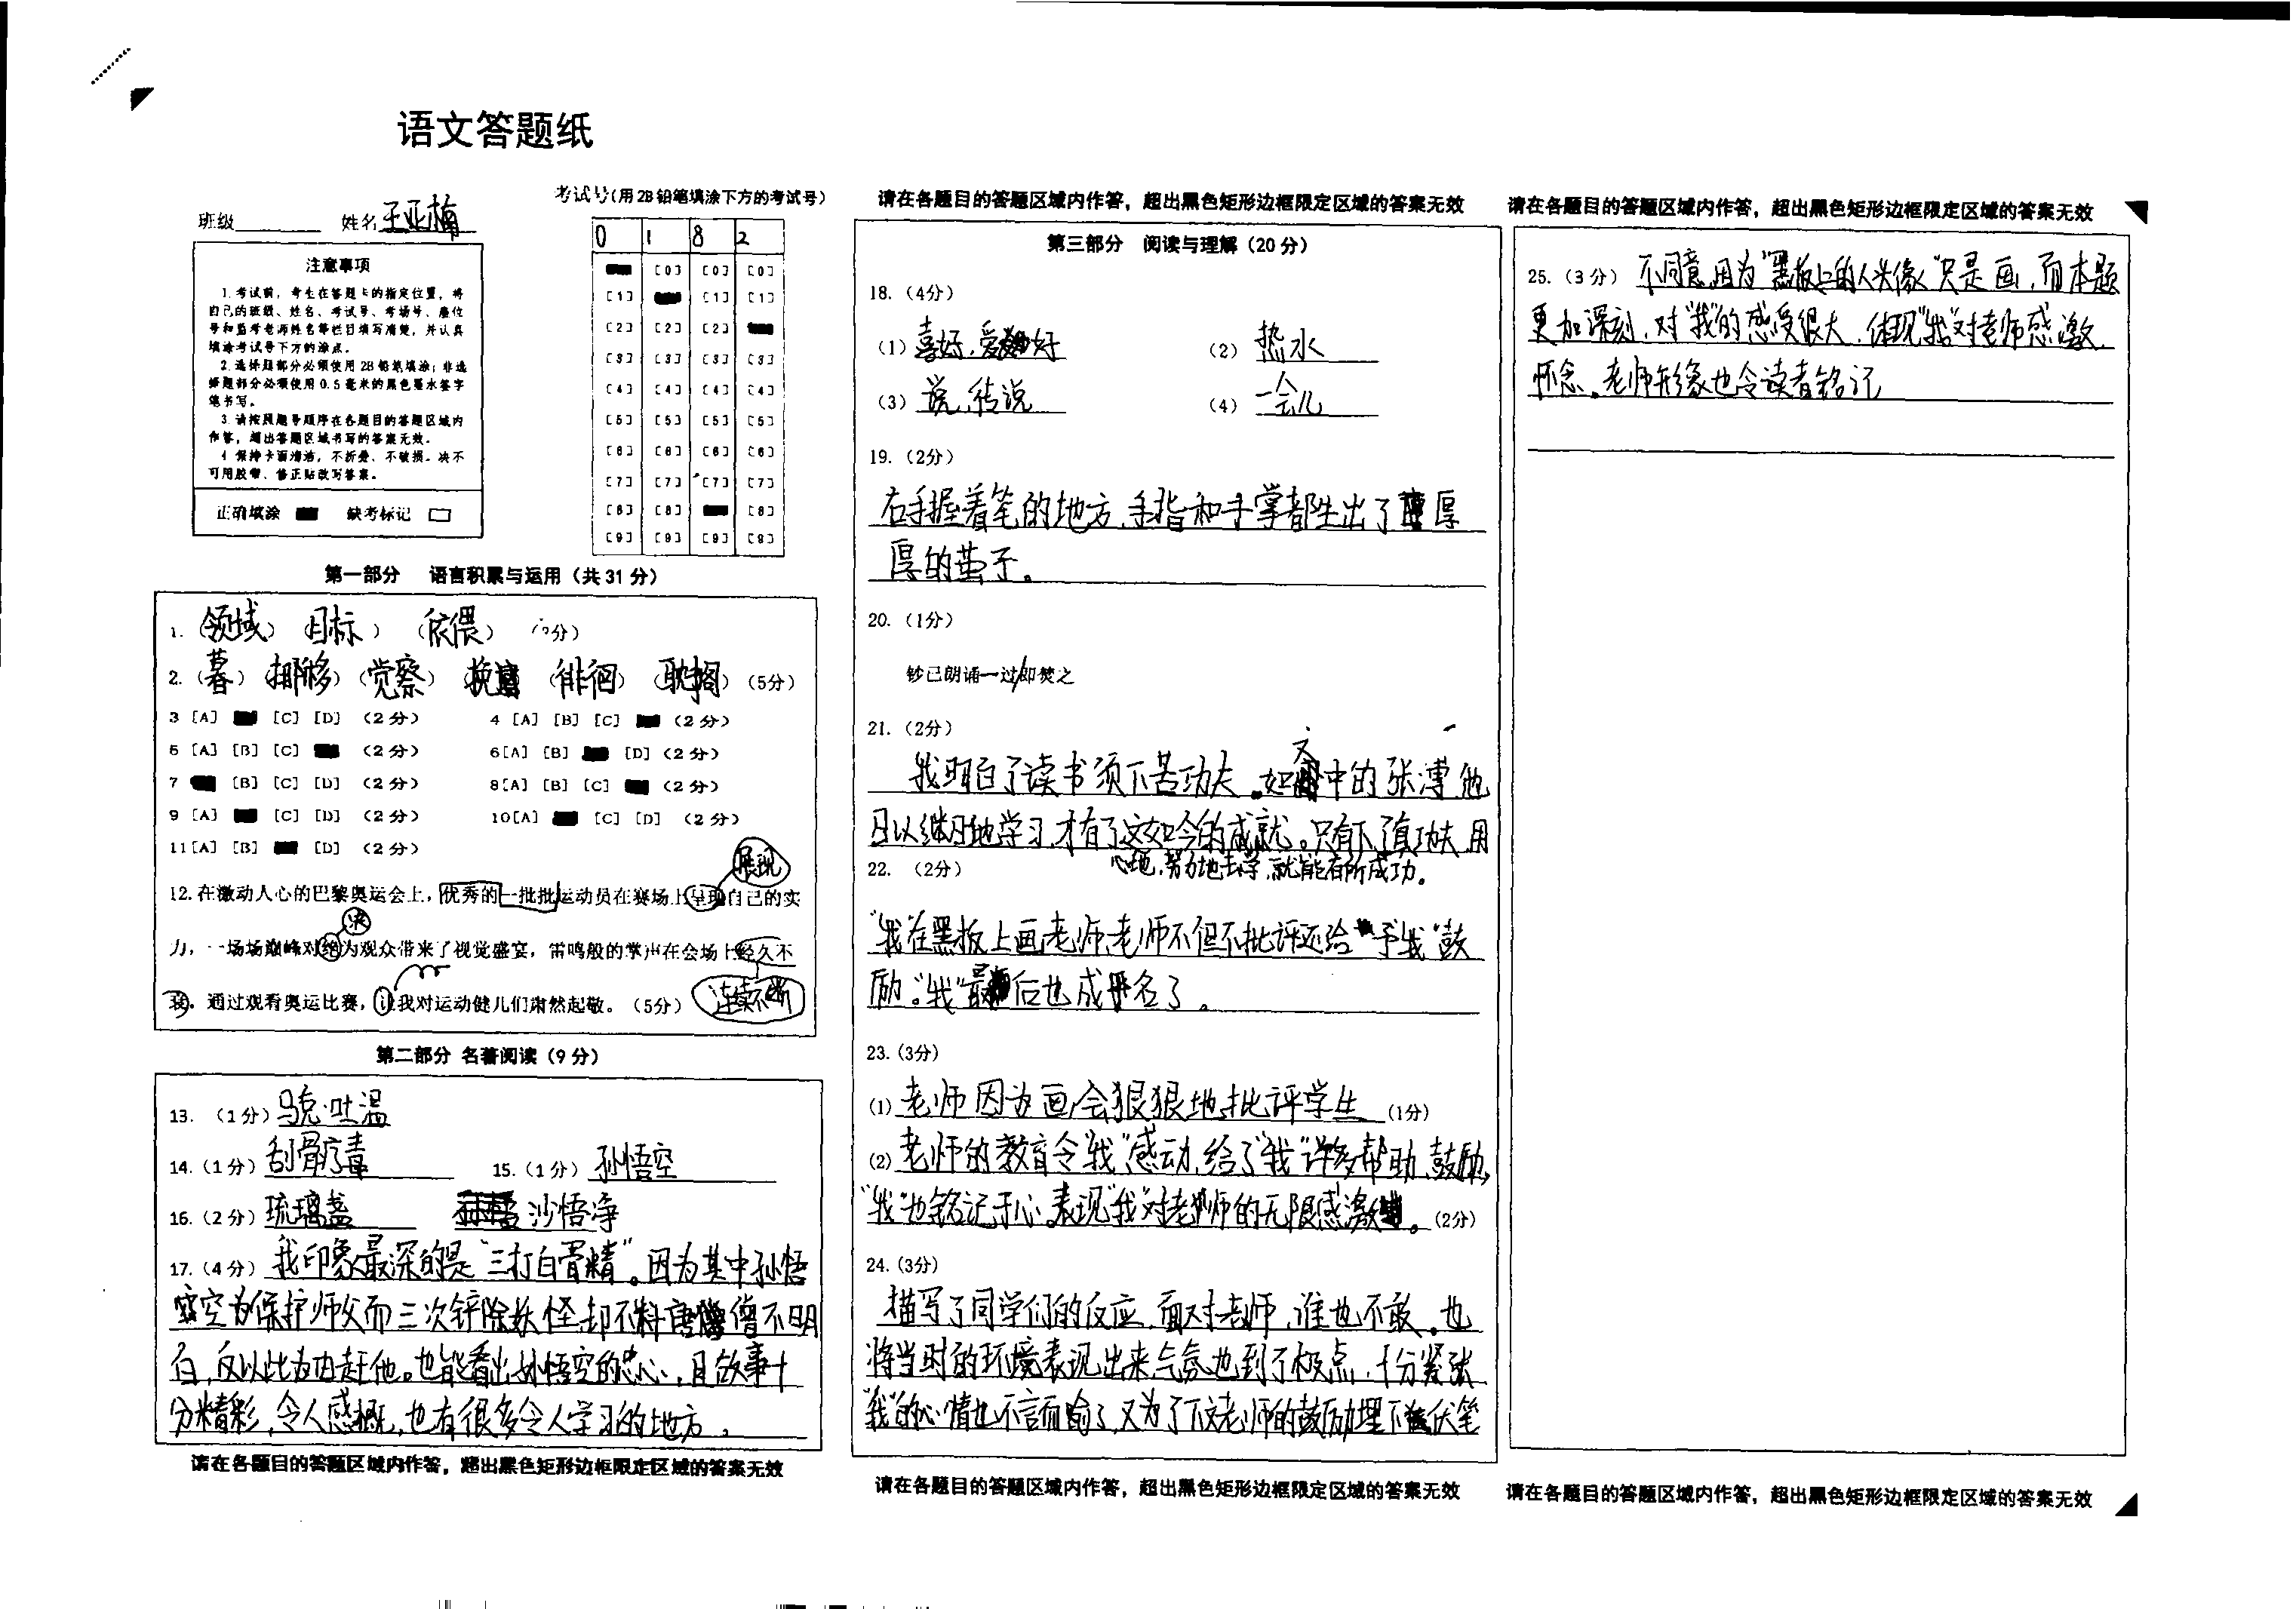 语文答题纸
班级 姓名 王亚楠
考试号(用2B铅笔填涂下方的考试号)
0 1 8 2
[0] [0] [0]
[1] [1] [1]
[2] [2] [2]
[3] [3] [3] [3]
[4] [4] [4] [4]
[5] [5] [5] [5]
[6] [6] [6] [6]
[7] [7] [7] [7]
[8] [8] [8]
[9] [9] [9] [9]
注意事项
1.考试前,考生在答题卡的指定位置,将
自己的班级、姓名、考试号、考场号、座位
号和监考老师姓名等栏目填写清楚,并认真
填涂考试号下方的涂点。
2.选择题部分必须使用2B铅笔填涂;非选
择题部分必须使用0.5毫米的黑色墨水签字
笔书写。
3.请按照题号顺序在各题目的答题区域内
作答,超出答题区域书写的答案无效。
4.保持卡面清洁,不折叠、不破损。决不
可用胶带、修正贴改写答案。
正确填涂 缺考标记
第一部分 语言积累与运用(共31分)
1.(领域)(目标)(依偎)
2.(暮)(挪移)(觉察)(徘徊)(耽搁)(5分)
3 [A] [C] [D] (2分) 4 [A] [B] [C] (2分)
5 [A] [B] [C] (2分) 6[A] [B] [D] (2分)
7 [B] [C] [D] (2分) 8[A] [B] [C] (2分)
9 [A] [C] [D] (2分) 10[A] [C] [D] (2分)
11[A] [B] [D] (2分)
展现
12.在激动人心的巴黎奥运会上,优秀的一批批运动员在赛场上呈现自己的实
决
力,一场场巅峰对绝为观众带来了视觉盛宴,雷鸣般的掌声在会场上经久不
衰。通过观看奥运比赛,让我对运动健儿们肃然起敬。(5分) 连续不断
第二部分 名著阅读(9分)
13. (1分) 马克·吐温
14.(1分) 刮骨疗毒 15.(1分) 孙悟空
16.(2分) 琉璃盏 沙悟净
17.(4分) 我印象最深的是“三打白骨精”。因为其中孙悟
空为保护师父而三次铲除妖怪,却不料唐僧不明
白,反以此为由赶他。也能看出孙悟空的忠心,且故事十
分精彩,令人感慨,也有很多令人学习的地方。
请在各题目的答题区域内作答,超出黑色矩形边框限定区域的答案无效
请在各题目的答题区域内作答,超出黑色矩形边框限定区域的答案无效
第三部分 阅读与理解(20分)
18.(4分)
(1) 喜好,爱好 (2) 热水
(3) 说,传说 (4) 一会儿
19.(2分)
右手握着笔的地方,手指和手掌都生出了厚
厚的茧子。
20.(1分)
钞已朗诵一过/即焚之
21.(2分)
我明白了读书须下苦功夫。如文中的张溥他
日以继夜地学习,才有了这如今的成就。只有下了真功夫,用
心地,努力地去学,就能有所成功。
22. (2分)
“我”在黑板上画老师,老师不但不批评还给予“我”鼓
励。“我”最后也成名了。
23.(3分)
(1)老师因为画会狠狠地批评学生 (1分)
(2)老师的教育令“我”感动,给了“我”许多帮助,鼓励,
“我”也铭记于心。表现“我”对老师的无限感激。(2分)
24.(3分)
描写了同学们的反应,面对老师,谁也不敢。也
将当时的环境表现出来气氛也到了极点,十分紧张
“我”的心情也不言而喻了,又为了下文老师的鼓励埋下伏笔
请在各题目的答题区域内作答,超出黑色矩形边框限定区域的答案无效
请在各题目的答题区域内作答,超出黑色矩形边框限定区域的答案无效
25.(3分) 不同意,因为“黑板上的人头像”只是画,而本题
更加深刻,对“我”的感受很大,体现“我”对老师感激,
怀念。老师形象也令读者铭记
请在各题目的答题区域内作答,超出黑色矩形边框限定区域的答案无效